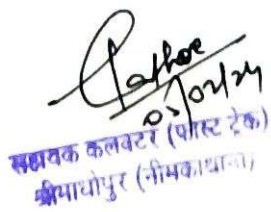 Rathore
01/02/24
सहायक कलक्टर (फास्ट ट्रेक)
श्रीमाधोपुर (नीमकाथाना)